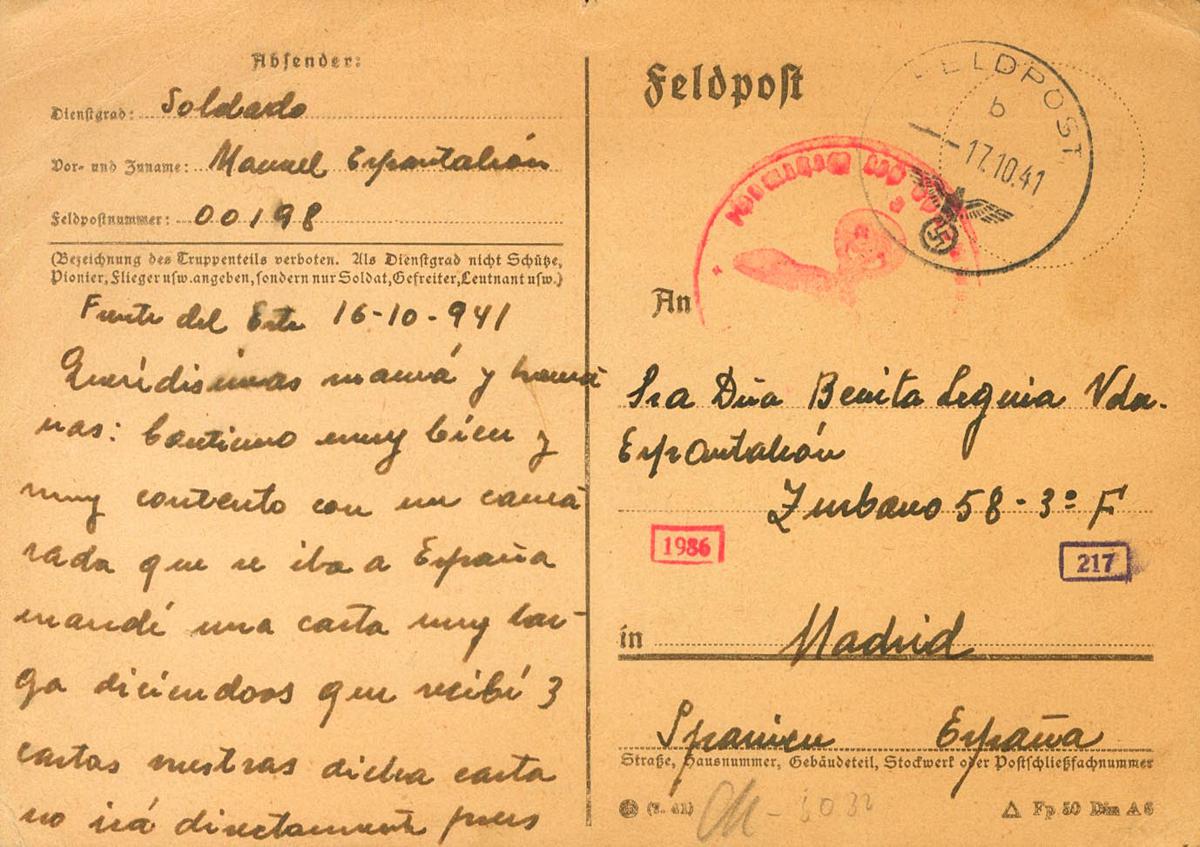 Absender:
Dienstgrad: Soldado
Vor- und Zuname: Manuel Espantaleón
Feldpostnummer: 00198
(Bezeichnung des Truppenteils verboten. Als Dienstgrad nicht Schütze,
Pionier, Flieger usw. angeben, sondern nur Soldat, Gefreiter, Leutnant usw.)
Frente del Este 16-10-941
Queridísimas mamá y herma
nas: Continuo muy bien y
muy contento con un cama
rada que se iba a España
mandé una carta muy lar-
ga diciendoos que recibí 3
cartas vuestras dicha carta
no irá directamente pues
Feldpost
FELDPOST
b
17.10.41
An
Sra Dña Benita Seguia Vda.
Espantaleón
Zurbano 58-3º F
1986
217
in Madrid
Spanien España
Straße, Hausnummer, Gebäudeteil, Stockwerk oder Postschließfachnummer
Fp 50 Din A 6